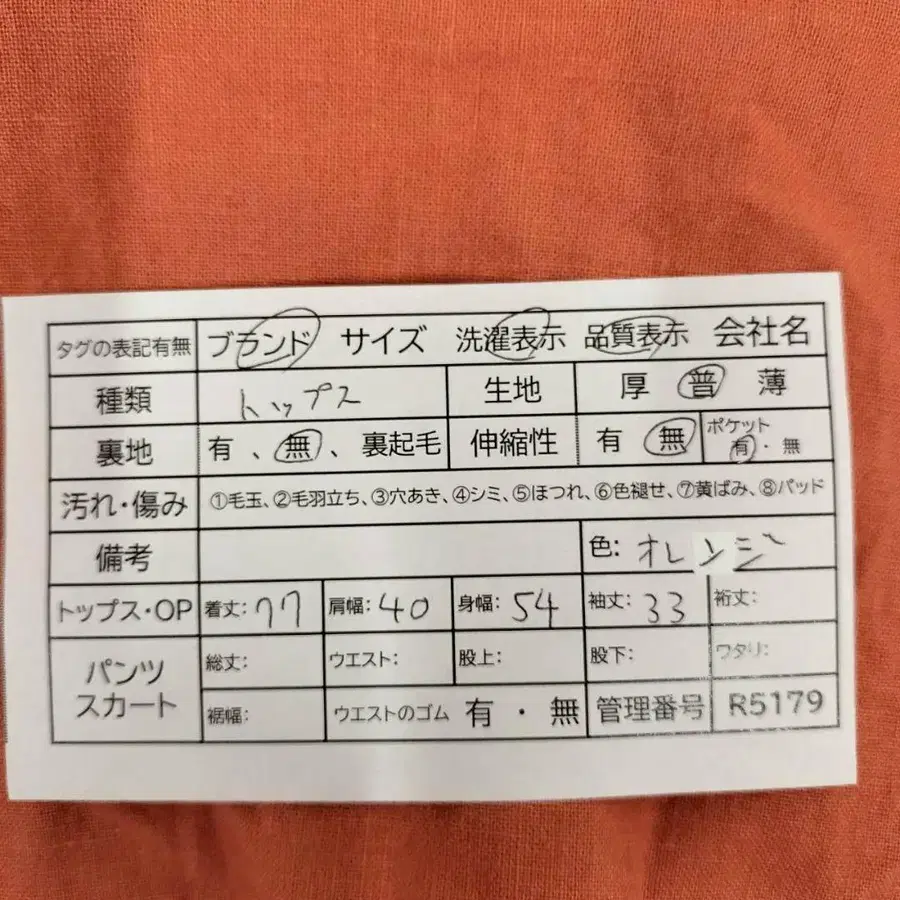 タグの表記有無 ブランド サイズ 洗濯表示 品質表示 会社名
種類 トップス 生地 厚 普 薄
裏地 有、無、裏起毛 伸縮性 有 無 ポケット 有・無
汚れ・傷み ①毛玉、②毛羽立ち、③穴あき、④シミ、⑤ほつれ、⑥色褪せ、⑦黄ばみ、⑧パッド
備考 色: オレンジ
トップス・OP 着丈: 77 肩幅: 40 身幅: 54 袖丈: 33 裄丈:
パンツ スカート 総丈: ウエスト: 股上: 股下: ワタリ:
裾幅: ウエストのゴム 有・無 管理番号 R5179